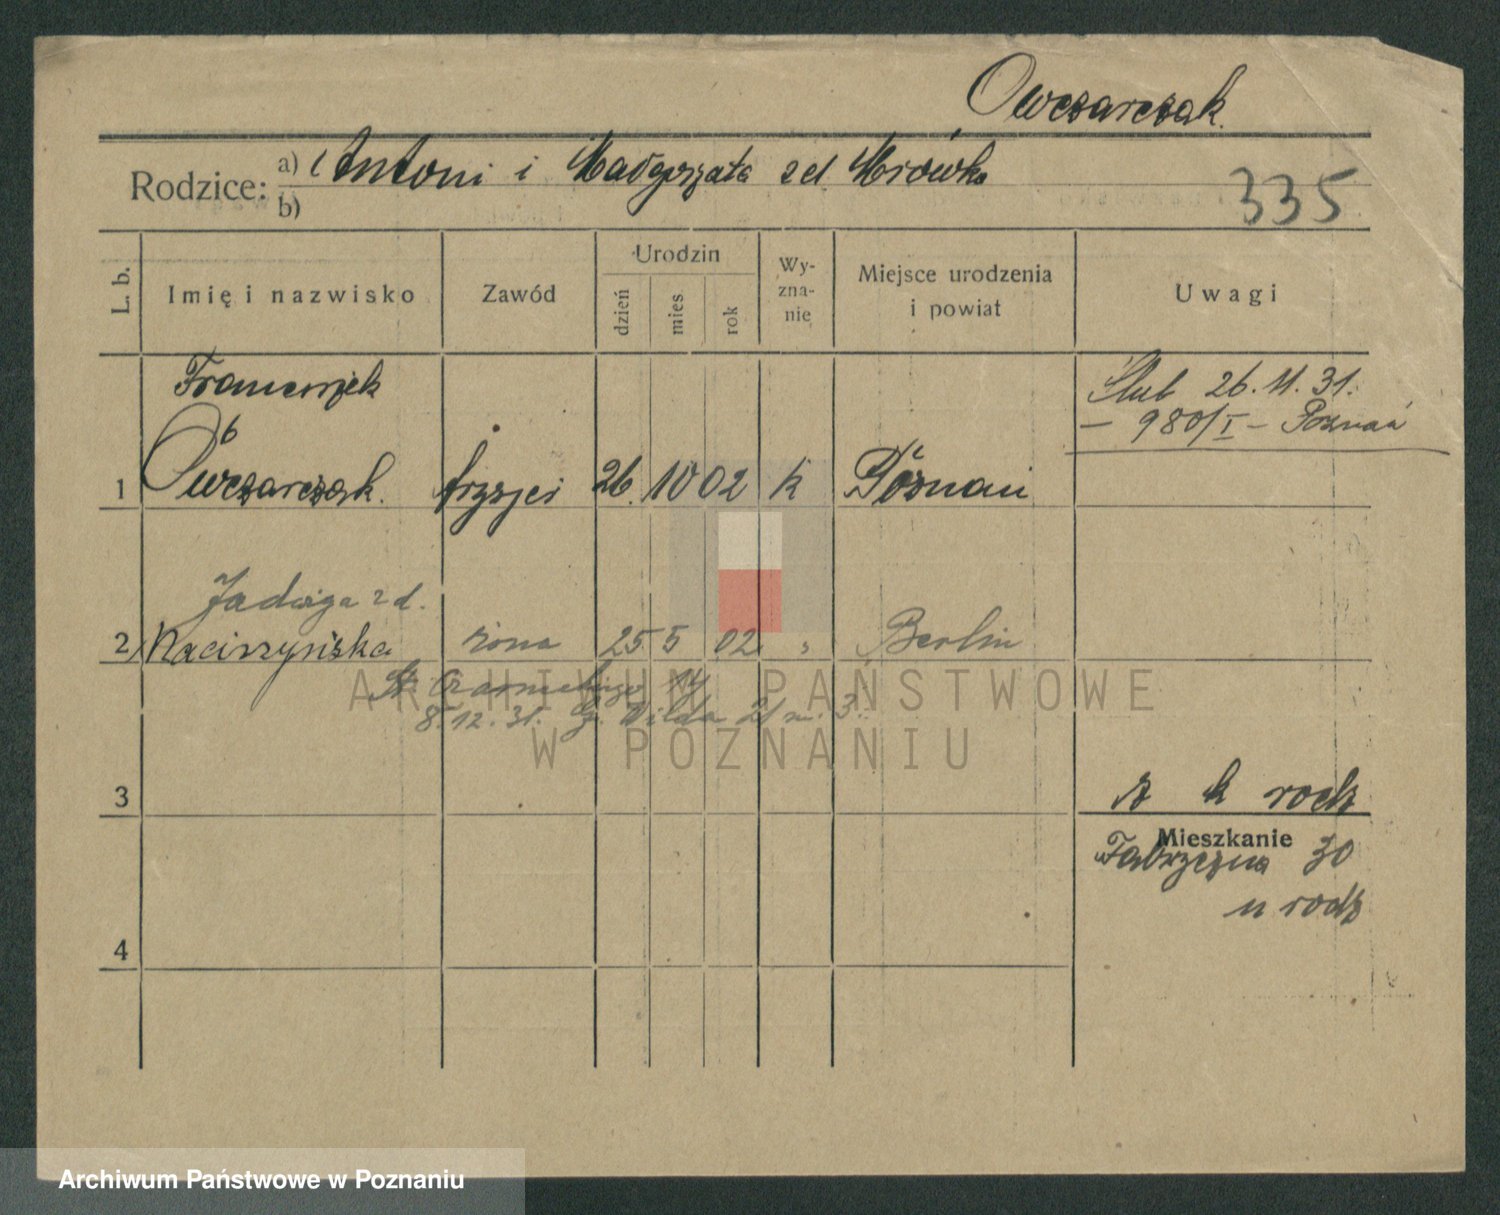 Owczarczak.
Rodzice: a) Antoni i Małgorzata zd Mrówka
b)
335
L. b.
Imię i nazwisko
Zawód
Urodzin
dzień
mies
rok
Wy-
zna-
nie
Miejsce urodzenia
i powiat
Uwagi
Franciszek
6
1 Owczarczak. fryzjer 26. 10 02 k Poznań
Ślub 26.11.31.
- 980/I - Poznań
Jadwiga zd.
2 żona 25 5 02 " Berlin
St. Czarneckiego 14
8.12.31. G. Wilda 21 m. 3.
ARCHIWUM PAŃSTWOWE
W POZNANIU
3
k rodz
Mieszkanie
Fabryczna 30
u rodz
4
Archiwum Państwowe w Poznaniu